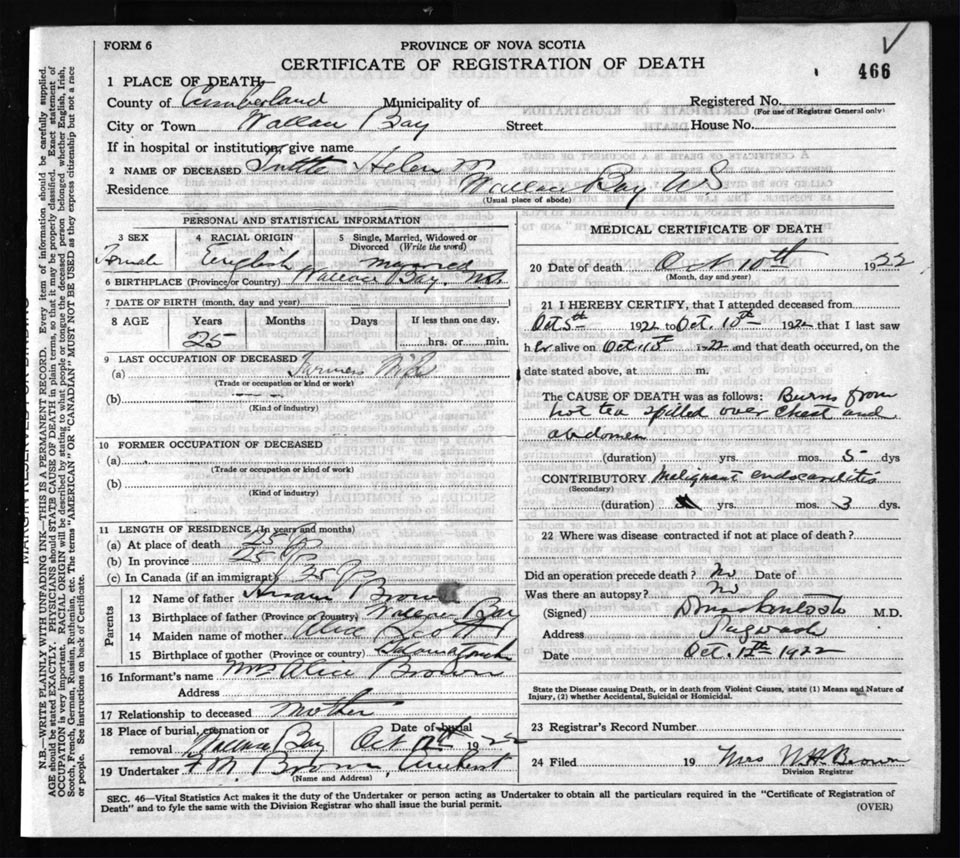 FORM 6
PROVINCE OF NOVA SCOTIA
CERTIFICATE OF REGISTRATION OF DEATH
466
1 PLACE OF DEATH—
County of Cumberland Municipality of Registered No.
(For use of Registrar General only)
City or Town Wallace Bay Street House No.
If in hospital or institution, give name
2 NAME OF DECEASED Helen M
Residence Wallace Bay NS
(Usual place of abode)
PERSONAL AND STATISTICAL INFORMATION
3 SEX 4 RACIAL ORIGIN 5 Single, Married, Widowed or Divorced (Write the word)
Female English Married
6 BIRTHPLACE (Province or Country) Wallace Bay, N.S.
7 DATE OF BIRTH (month, day and year)
8 AGE Years Months Days If less than one day,
25 hrs. or min.
9 LAST OCCUPATION OF DECEASED
(a) Farmers Wife
(Trade or occupation or kind or work)
(b)
(Kind of industry)
10 FORMER OCCUPATION OF DECEASED
(a)
(Trade or occupation or kind of work)
(b)
(Kind of industry)
11 LENGTH OF RESIDENCE (In years and months)
(a) At place of death 25
(b) In province 25
(c) In Canada (if an immigrant) 25
Parents
12 Name of father Brown
13 Birthplace of father (Province or country) Wallace Bay
14 Maiden name of mother Alice
15 Birthplace of mother (Province or country)
16 Informant's name Mrs Alice Brown
Address
17 Relationship to deceased Mother
18 Place of burial, cremation or removal Wallace Bay Date of burial Oct 1922
19 Undertaker F. M. Brown, Amherst
(Name and Address)
MEDICAL CERTIFICATE OF DEATH
20 Date of death Oct 10th 1922
(Month, day and year)
21 I HEREBY CERTIFY, that I attended deceased from
Oct 5th 1922 to Oct. 10th 1922 that I last saw
her alive on Oct. 10th 1922 and that death occurred, on the
date stated above, at m.
The CAUSE OF DEATH was as follows: Burns from
hot tea spilled over chest and
abdomen
(duration) yrs. mos. 5 dys
CONTRIBUTORY Malignant endocarditis
(Secondary)
(duration) yrs. mos. 3 dys.
22 Where was disease contracted if not at place of death?
Did an operation precede death? No Date of
Was there an autopsy? No
(Signed) D Mackintosh M.D.
Address Pugwash
Date Oct. 1922
State the Disease causing Death, or in death from Violent Causes, state (1) Means and Nature of
Injury, (2) whether Accidental, Suicidal or Homicidal.
23 Registrar's Record Number
24 Filed 19 Mrs N.H. Brown
Division Registrar
SEC. 46—Vital Statistics Act makes it the duty of the Undertaker or person acting as Undertaker to obtain all the particulars required in the "Certificate of Registration of
Death" and to fyle the same with the Division Registrar who shall issue the burial permit.
(OVER)
N.B.—WRITE PLAINLY WITH UNFADING INK—THIS IS A PERMANENT RECORD. Every item of information should be carefully supplied.
AGE should be stated EXACTLY. PHYSICIANS should STATE CAUSE OF DEATH in plain terms, so that it may be properly classified. Exact statement of
OCCUPATION is very important. RACIAL ORIGIN will be described by stating to what people or tongue the deceased person belonged, whether English, Irish,
Scotch, French, German, Russian, Ruthenian, etc. The terms "AMERICAN" OR "CANADIAN" MUST NOT BE USED as they express citizenship but not a race
or people. See instructions on back of Certificate.